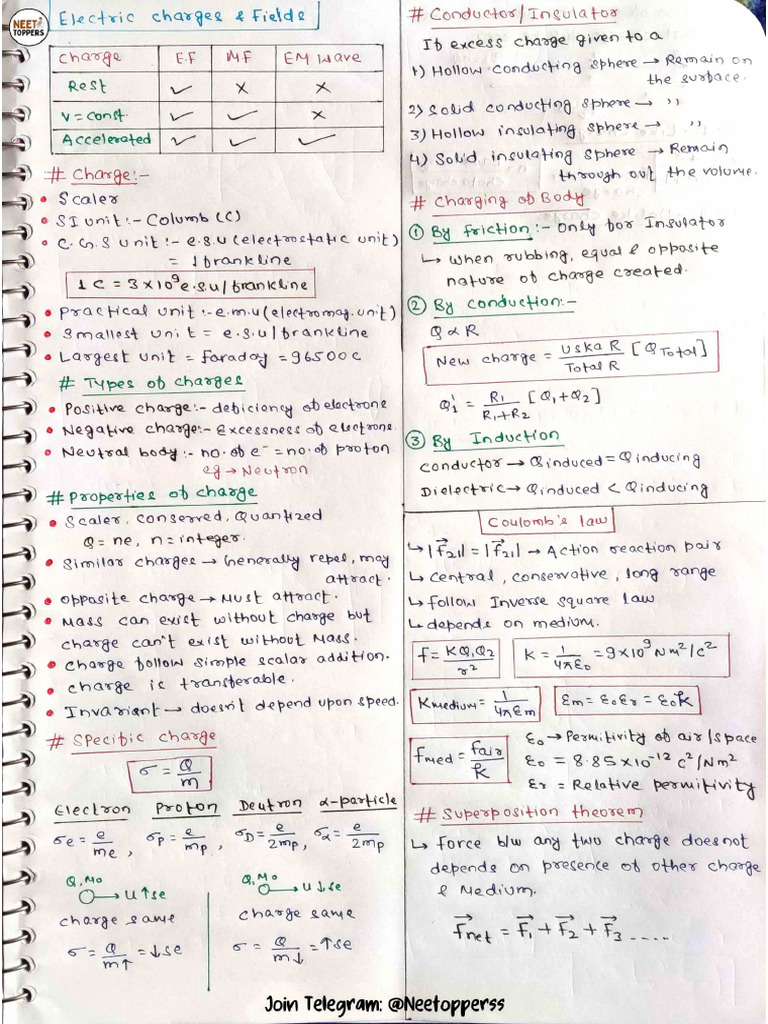 NEET TOPPERS
Electric charges & Fields
Charge E.F MF EM Wave
Rest ✓ × ×
v = const. ✓ ✓ ×
Accelerated ✓ ✓ ✓
# Charge:-
• Scaler
• SI unit:- Columb (C)
• C.G.S unit:- e.s.u (electrostatic unit)
= 1 frankline
1 C = 3×10⁹ e.s.u/frankline
• Practical unit:- e.m.u (electromag. unit)
• Smallest unit = e.s.u/frankline
• Largest unit = faraday = 96500 C
# Types of charges
• Positive charge:- deficiency of electrons
• Negative charge:- Excessness of electrons.
• Neutral body:- no. of e⁻ = no. of proton
eg → Neutron
# Properties of charge
• Scaler, conserved, Quantized
Q = ne, n = integer.
• Similar charges → Generally repel, may
attract.
• opposite charge → Must attract.
• Mass can exist without charge but
charge can't exist without Mass.
• Charge follow simple scalar addition.
• charge is transferable.
• Invariant → doesn't depend upon speed.
# Specific charge
σ = Q/m
Electron Proton Deutron α-particle
σe = e/me, σp = e/mp, σD = e/2mp, σα = e/2mp
Q, M₀ → u↑se
charge same
σ = Q/m↑ = ↓se
Q, M₀ → u↓se
charge same
σ = Q/m↓ = ↑se
# Conductor/Insulator
If excess charge given to a
1) Hollow conducting sphere → Remain on
the surface.
2) Solid conducting sphere → ,,
3) Hollow insulating sphere → ,,
4) Solid insulating sphere → Remain
through out the volume.
# Charging of Body
① By friction:- Only for Insulator
↳ when rubbing, equal & opposite
nature of charge created.
② By conduction:-
Q ∝ R
New charge = uska R/Total R [Q Total]
Q₁' = R₁/R₁+R₂ [Q₁+Q₂]
③ By Induction
conductor → Q induced = Q inducing
Dielectric → Q induced < Q inducing
Coulomb's law
↳ |F⃗₂₁| = |F⃗₂₁| → Action reaction pair
↳ central, conservative, long range
↳ follow Inverse square law
↳ depends on medium.
f = KQ₁Q₂/r² K = 1/4πε₀ = 9×10⁹ Nm²/C²
K medium = 1/4πεm εm = ε₀εr = ε₀k
fmed = fair/k
ε₀ → Permitivity of air/space
ε₀ = 8.85×10⁻¹² C²/Nm²
εr = Relative permitivity
# Superposition theorem
↳ force b/w any two charge doesnot
depends on presence of other charge
& Medium.
F⃗net = F⃗₁ + F⃗₂ + F⃗₃ .....
Join Telegram: @Neetopperss